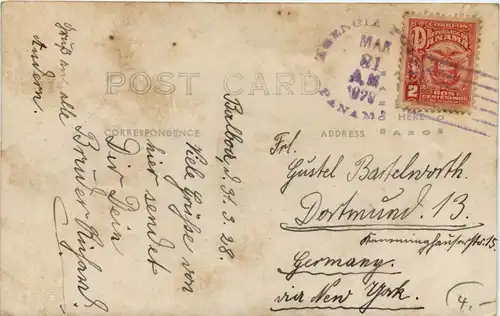 POST CARD
CORRESPONDENCE
ADDRESS
HERE
AGENCIA
MAR
31
AM
PANAMA
CORREOS
REPUBLICA DE
PANAMA
2
DOS
CENTESIMOS
Balboa, d. 31. 3. 28.
Viele Grüße von
hier sendet
Dir Dein
Bruder Richard.
Gruß an alle
Andern.
Frl.
Gustel Bastelworth.
Dortmund. 13.
Kemminghauserstr. 15.
Germany.
via New York.
4.-